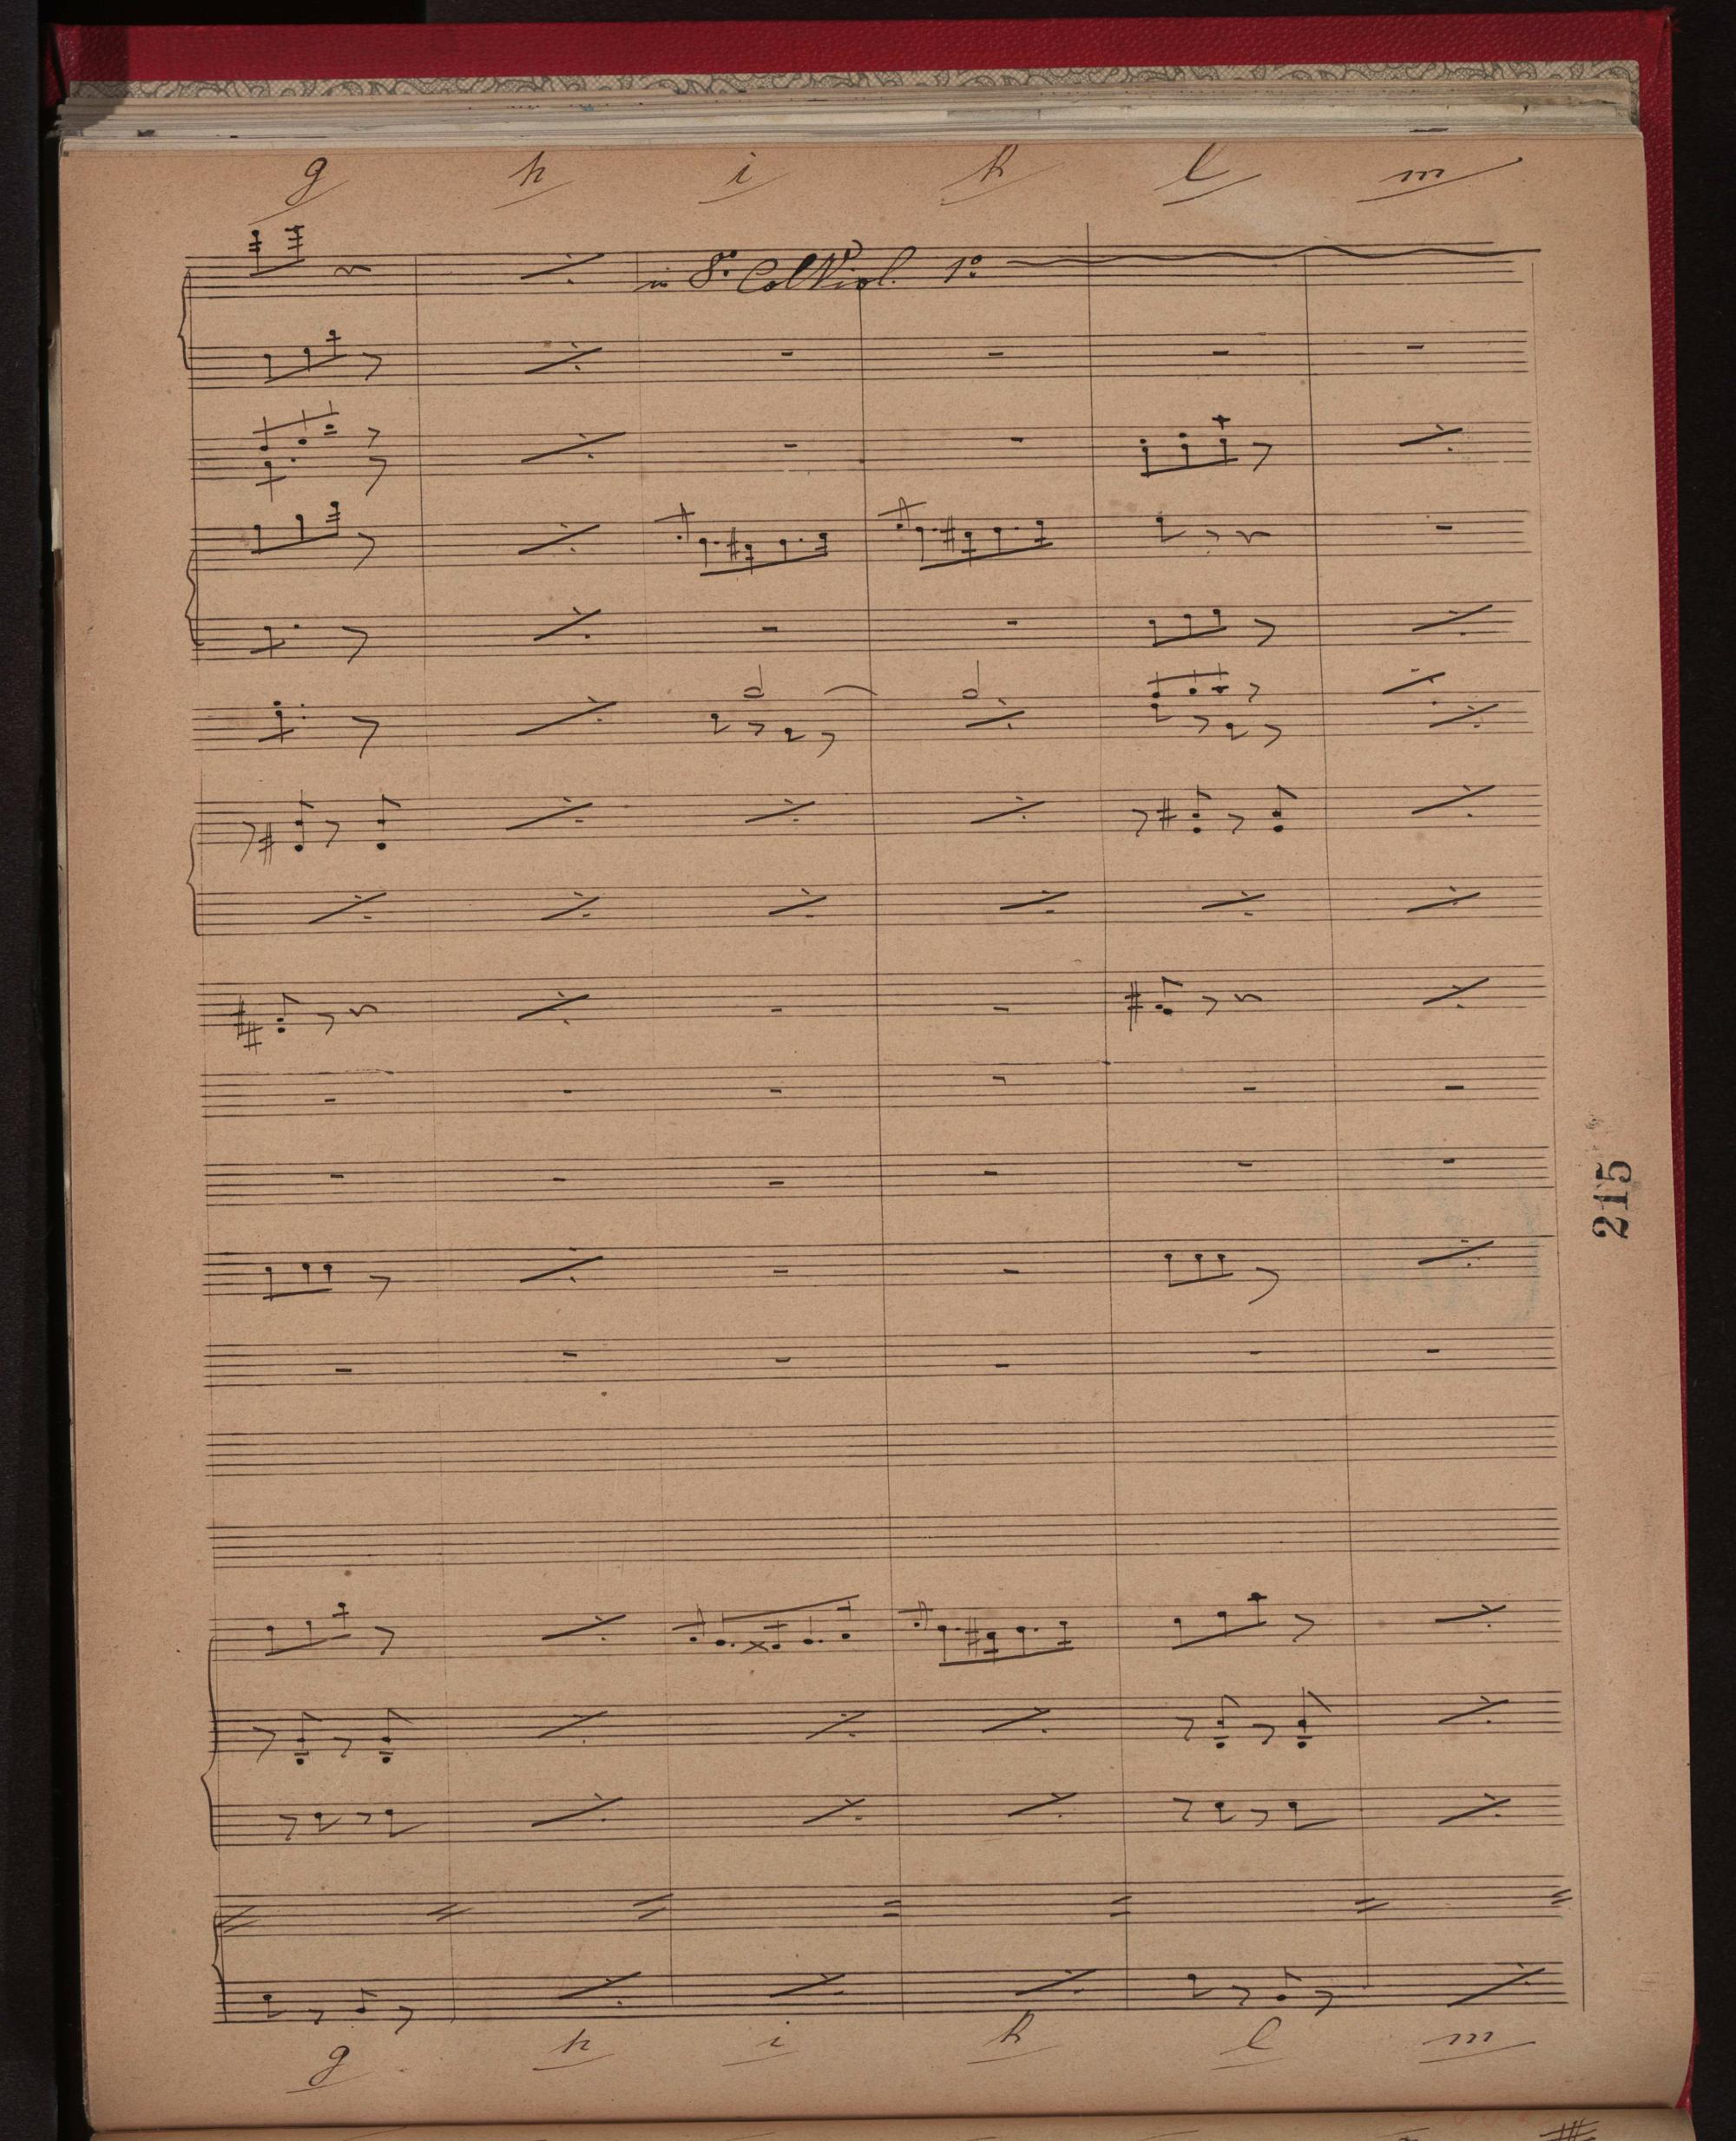 g h i k l m
in 8ª Col Viol. 1º
215
g h i k l m